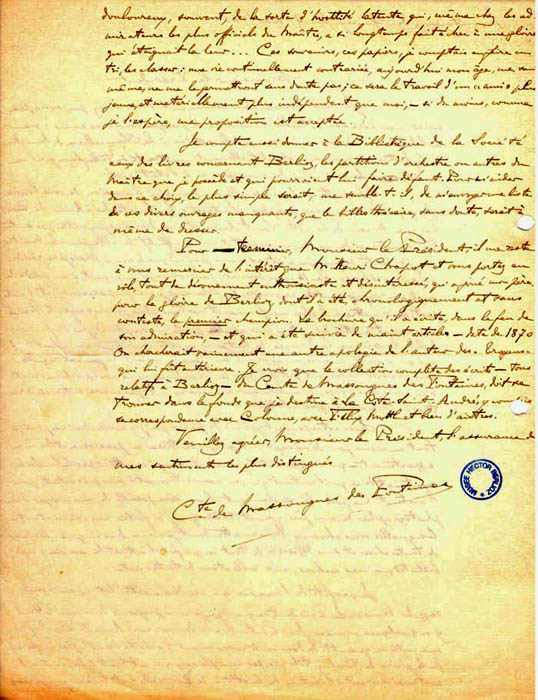 douloureux, souvent, de la sorte d'hostilité latente qui, même chez les ad-
mirateurs les plus officiels du Maître, a si longtemps fait échec à une gloire
qui éteignait la leur... Ces souvenirs, ces papiers, je comptais
les classer: une vie continuellement contrariée, aujourd'hui mon âge,
même, ne me le permettront sans doute pas; ce sera le travail d'un plus
jeune, et matériellement plus indépendant que moi, — si du moins, comme
je l'espère, ma proposition est acceptée.
Je compte aussi donner à la Bibliothèque de la Société
ceux des livres concernant Berlioz, les partitions d'orchestre ou autres du
Maître que je possède et qui pourraient lui faire défaut. Pour m'aider
dans ce choix, le plus simple serait, me semble-t-il, de m'envoyer une liste
de ces divers ouvrages manquants, que le bibliothécaire, sans doute, serait à
même de dresser.
Pour terminer, Monsieur le Président, il me reste
à vous remercier de l'intérêt que M. Henri Chapot et vous portez au
rôle tout de dévouement enthousiaste et désintéressé, qu'a joué mon père,
pour la gloire de Berlioz, dont il a été, chronologiquement et sans
conteste, le premier champion. La brochure qu'il a écrite, dans le feu de
son admiration, — et qui a été suivie de maint articles — date de 1870
On chercherait vainement une autre apologie de l'auteur des Troyens
qui lui fut antérieure. Je crois que la collection complète des écrits — tous
relatifs à Berlioz — du Comte de Massougnes des Fontaines, doit se
trouver dans le fonds que je destine à La Côte Saint-André,
sa correspondance avec Colonne, avec Félix Mottl et bien d'autres.
Veuillez agréer, Monsieur le Président, l'assurance de
mes sentiments les plus distingués
Cte de Massougnes des Fontaines
MUSEE HECTOR BERLIOZ